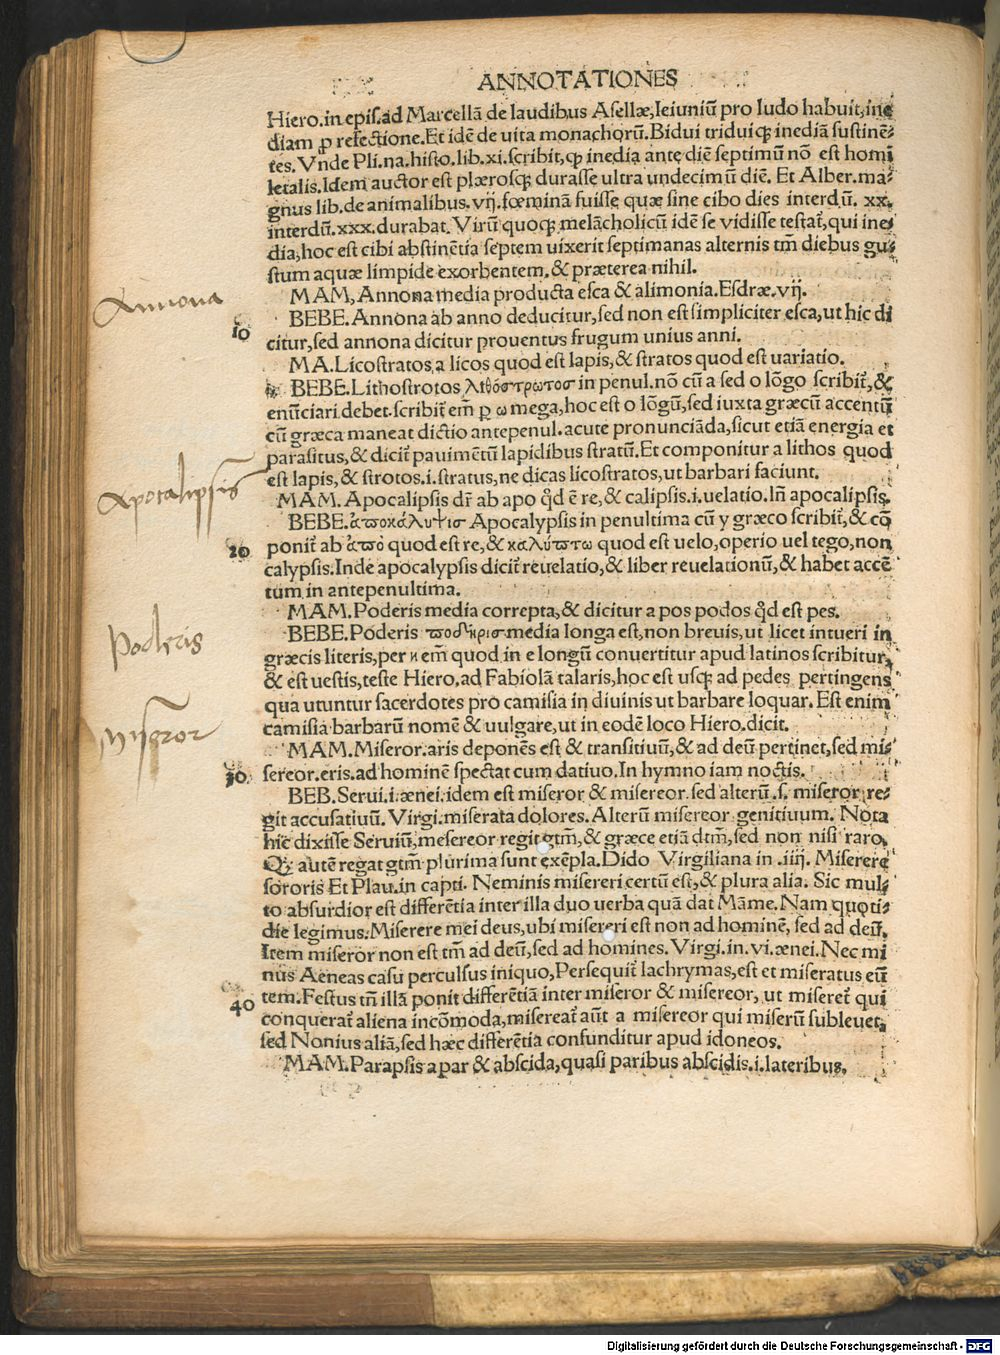 ANNOTATIONES
Hiero.in epis.ad Marcellā de laudibus Asellæ,Ieiuniū pro ludo habuit,ine
diam ꝓ refectione.Et idē de uita monachorū.Bidui triduiqꝫ inediā sustinē⸗
tes. Vnde Pli.na.histo.lib.xi.scribit,ꝙ inedia ante diē septimū nō est homi
letalis.Idem auctor est plærosqꝫ durasse ultra undecimū diē. Et Alber.ma⸗
gnus lib.de animalibus.vij.fœminā fuisse quæ sine cibo dies interdū. xx.
interdū.xxx.durabat. Virū quoqꝫ melācholicū idē se vidisse testat᷑,qui ine⸗
dia,hoc est cibi abstinētia septem uixerit septimanas alternis tm̄ diebus gu⸗
stum aquæ limpide exorbentem,& præterea nihil.
MAM, Annona media producta esca & alimonia.Esdræ.vij.
Annona
BEBE.Annona ab anno deducitur,sed non est simpliciter esca,ut hic di
10
citur,sed annona dicitur prouentus frugum unius anni.
MA.Licostratos a licos quod est lapis,& stratos quod est uariatio.
BEBE.Lithostrotos λιθόστρωτοσ in penul.nō cū a sed o lōgo scribit᷑,&
enūciari debet.scribit᷑ em̄ ꝑ ω mega,hoc est o lōgū,sed iuxta græcū accentū
cū græca maneat dictio antepenul.acute pronunciāda,sicut etiā energia et
parasitus,& dicit᷑ pauimētū lapidibus stratū.Et componitur a lithos quod
est lapis,& strotos.i.stratus,ne dicas licostratos,ut barbari faciunt.
Apocalipsis
MAM.Apocalipsis dr̄ ab apo qd̄ ē re,& calipsis.i.uelatio.In̄ apocalipsis.
BEBE.ἀποκάλυψισ Apocalypsis in penultima cū y græco scribit᷑,& cō
20
ponit᷑ ab ἀπὸ quod est re,& καλύπτω quod est uelo,operio uel tego,non
calypsis.Inde apocalypsis dicit᷑ reuelatio,& liber reuelationū,& habet accē
tum in antepenultima.
MAM.Poderis media correpta,& dicitur a pos podos qd̄ est pes.
Poderis
BEBE.Poderis ποδήρισ media longa est,non breuis,ut licet intueri in
græcis literis,per η em̄ quod in e longū conuertitur apud latinos scribitur,
& est uestis,teste Hiero.ad Fabiolā talaris,hoc est usqꝫ ad pedes pertingens
qua utuntur sacerdotes pro camisia in diuinis ut barbare loquar. Est enim
camisia barbarū nomē & uulgare,ut in eodē loco Hiero.dicit.
Miseror
MAM.Miseror.aris deponēs est & transitiuū,& ad deū pertinet,sed mi⸗
30
sereor.eris.ad hominē spectat cum datiuo.In hymno iam noctis.
BEB.Serui.i.ænei.idem est miseror & misereor.sed alterū .s. miseror re⸗
git accusatiuū. Virgi.miserata dolores. Alterū misereor genitiuum. Nota
hic dixisse Seruiū,mesereor regit gtm̄,& græce etiā dtm̄,sed non nisi raro.
Qꝙ autē regat gtm̄ plurima sunt exēpla.Dido Virgiliana in .iiij. Miserere
sororis Et Plau.in capti. Neminis misereri certū est,& plura alia. Sic mul⸗
to absurdior est differētia inter illa duo uerba quā dat Māme.Nam quoti⸗
die legimus.Miserere mei deus,ubi misereri est non ad hominē, sed ad deū.
Item miseror non est tm̄ ad deū,sed ad homines. Virgi.in.vi.ænei.Nec mi
nus Aeneas casu perculsus iniquo,Persequit᷑ lachrymas,est et miseratus eū
40
tem.Festus tn̄ illā ponit differētiā inter miseror & misereor, ut miseret᷑ qui
conquerat᷑ aliena incōmoda,misereat᷑ aūt a misereor qui miserū subleuet,
sed Nonius aliā,sed hæc differētia confunditur apud idoneos.
MAM.Parapsis a par & abscida,quasi paribus abscidis.i.lateribus.
Digitalisierung gefördert durch die Deutsche Forschungsgemeinschaft - DFG